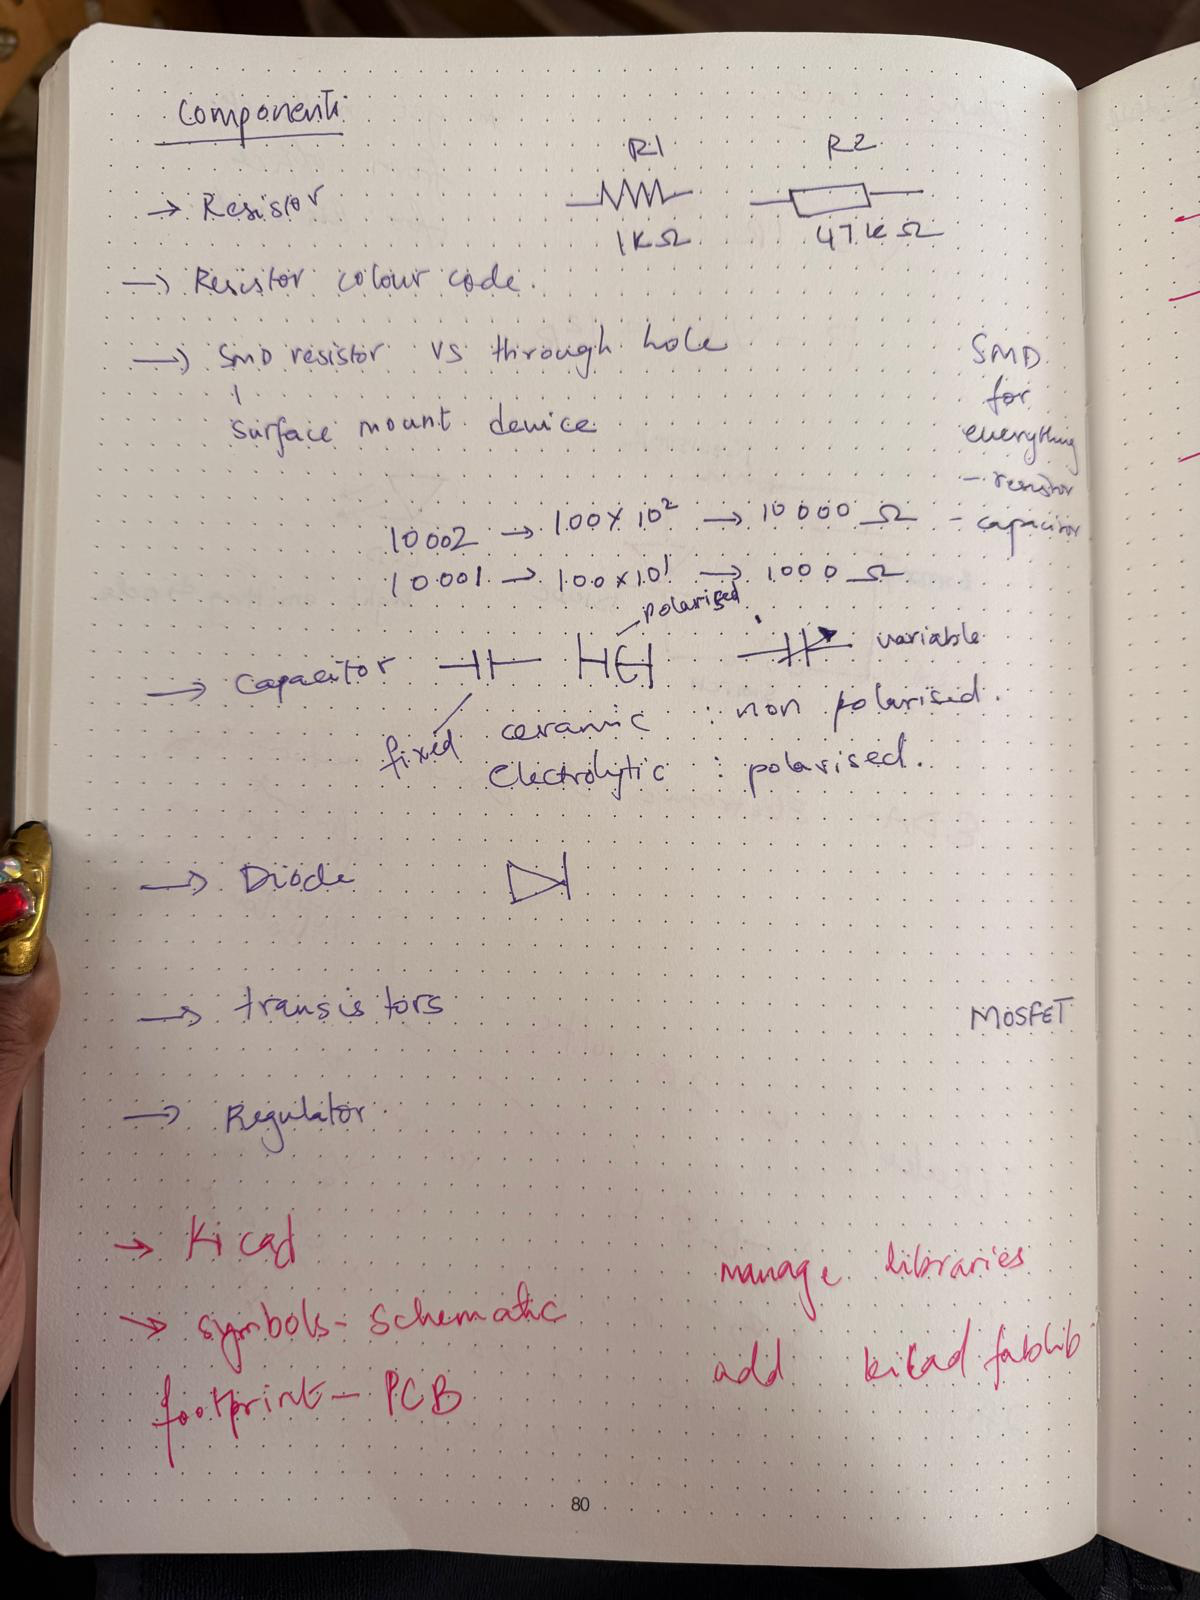 Components
R1 R2
→ Resistor
1KΩ 47KΩ
→ Resistor colour code.
→ SMD resistor vs through hole
surface mount device
SMD
for
everything
- resistor
- capacitor
10002 → 100 x 10² → 10000 Ω
10001 → 100 x 10¹ → 1000 Ω
polarised
→ Capacitor variable
fixed
ceramic : non polarised.
Electrolytic : polarised.
→ Diode
→ transistors MOSFET
→ Regulator
→ Kicad
manage libraries
→ symbols - schematic
add kicad fablib
footprint - PCB
80